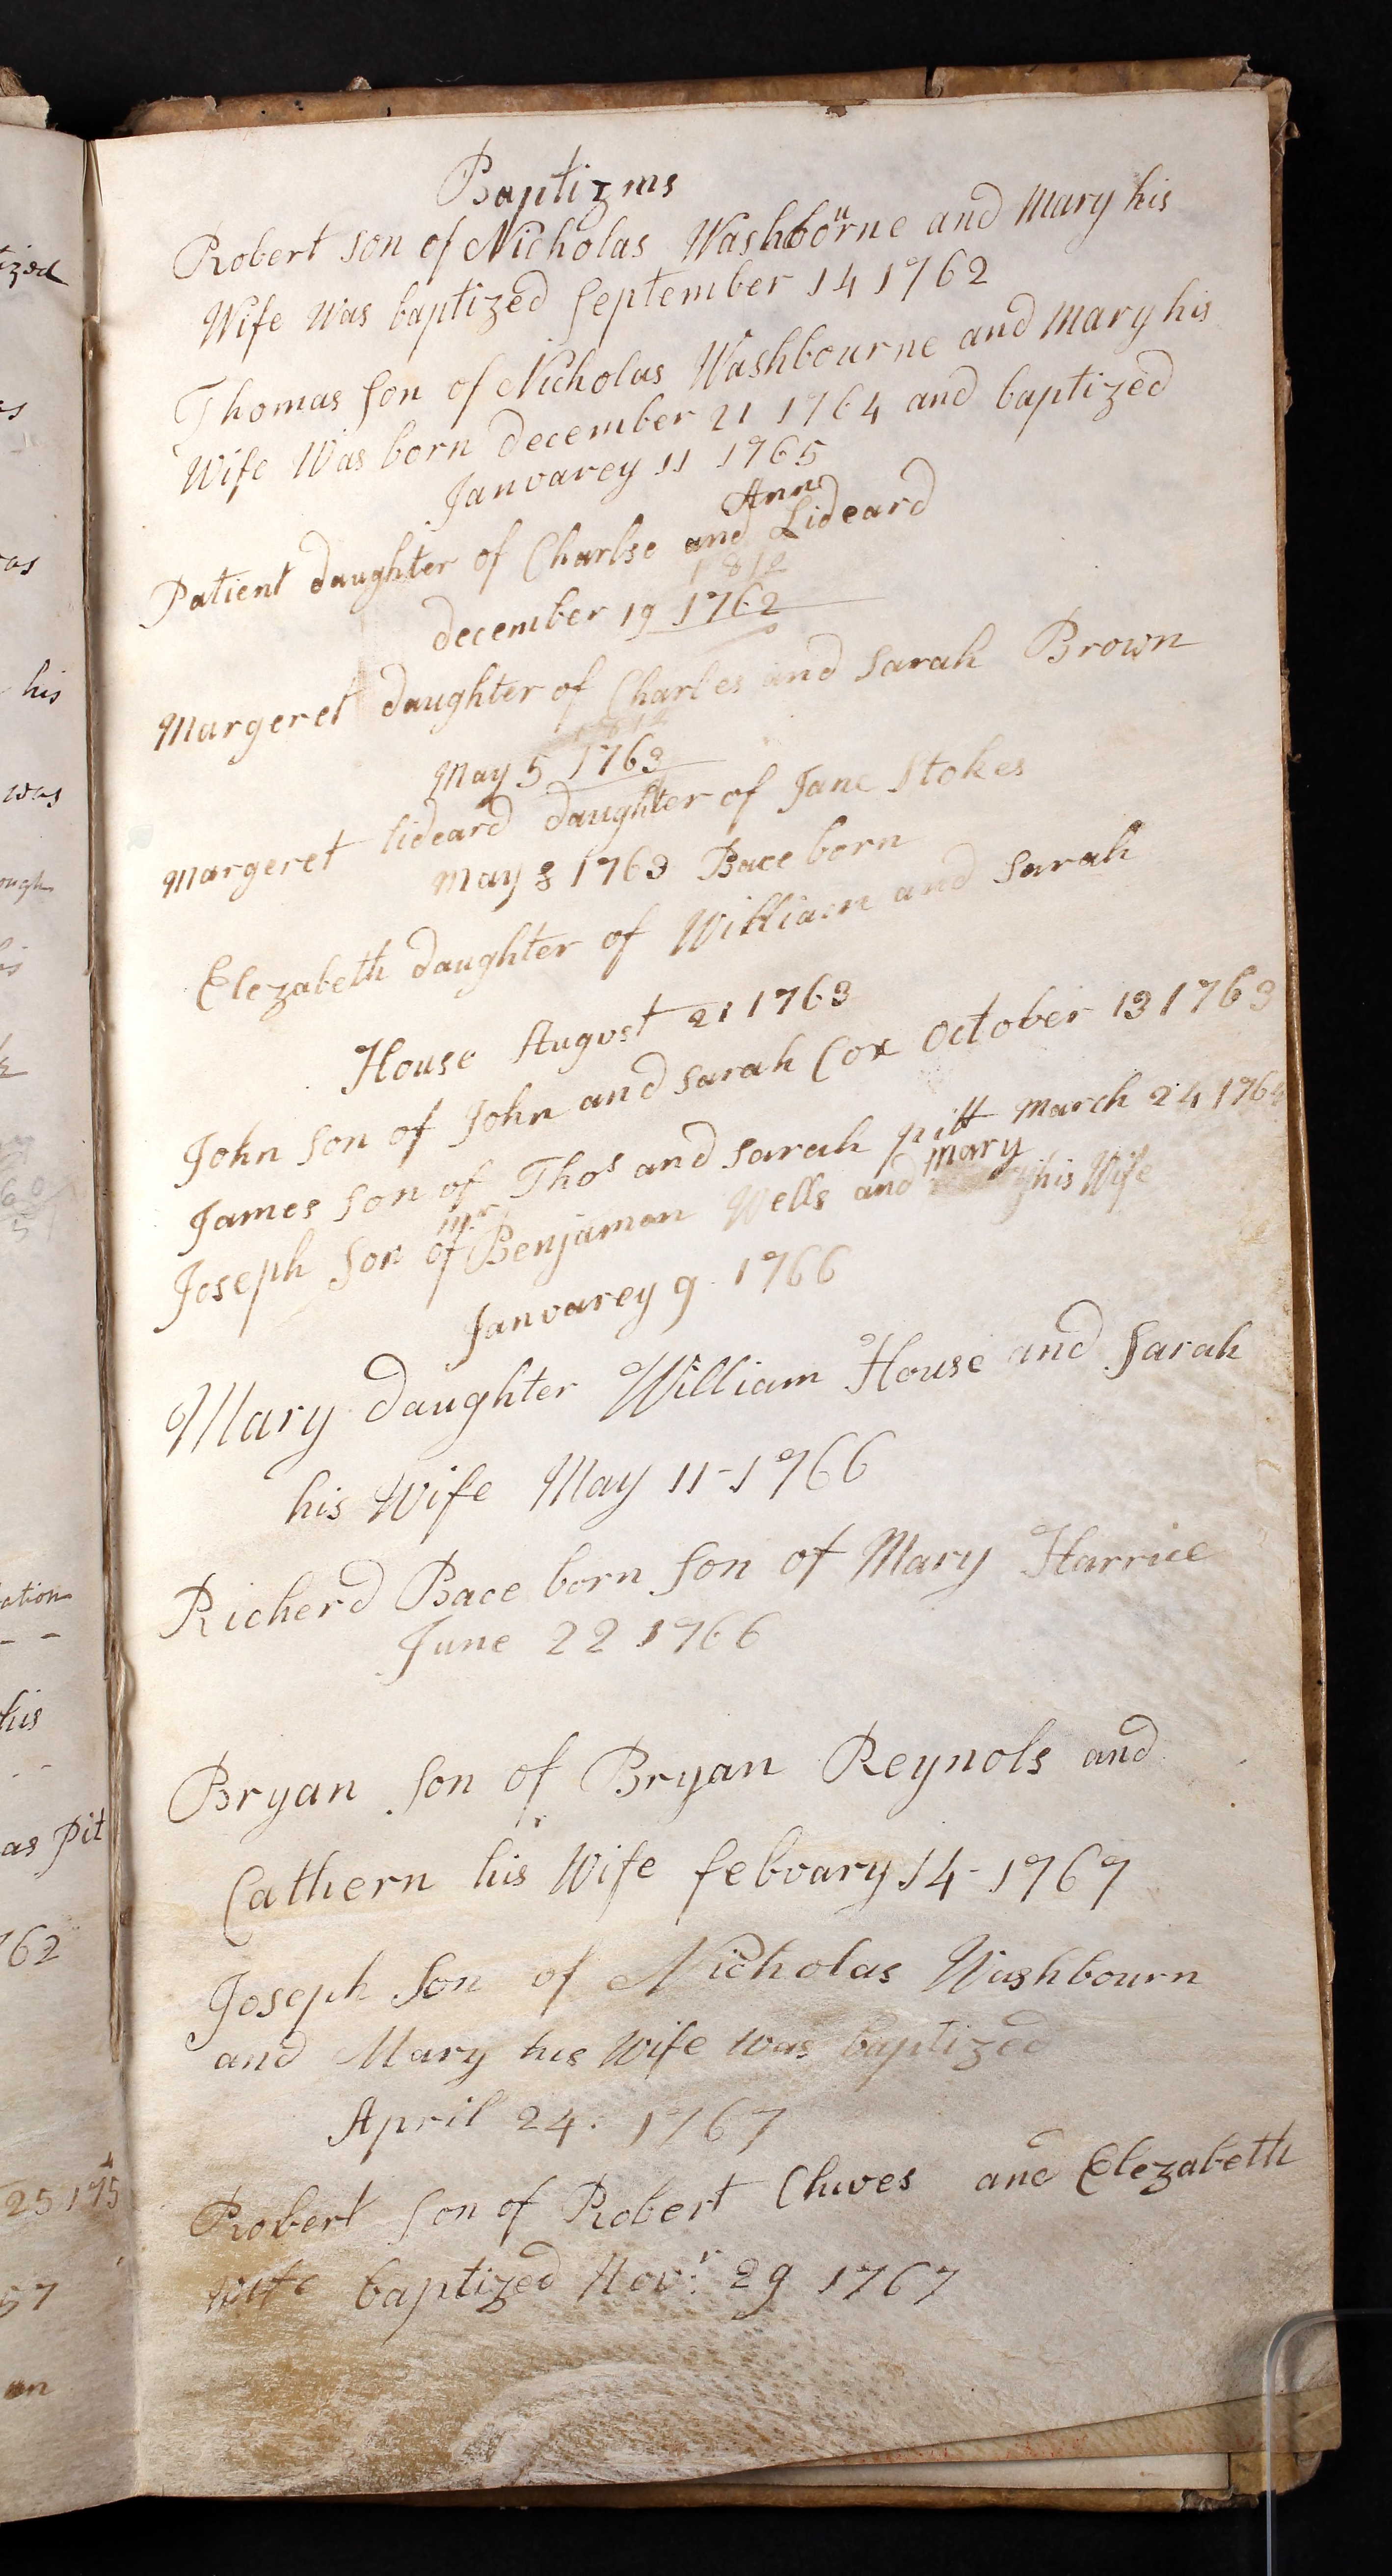 Baptizms
Robert son of Nicholas Washbourne and Mary his
Wife Was baptized September 14 1762
Thomas son of Nicholas Washbourne and Mary his
Wife Was born december 21 1764 and baptized
Janvarey 11 1765
Ann
Patient daughter of Charlse and Lideard
december 19 1762
Margeret daughter of Charles and Sarah Brown
May 5 1763
Margeret lideard daughter of Jane Stokes
May 8 1763 Bace born
Elezabeth daughter of William and Sarah
House Avgvst 21 1763
John son of John and Sarah Cox October 13 1763
James son of Thos and Sarah pitt March 24 176
Mr Mary
Joseph son of Benjamen Wells and his Wife
Janvarey 9 1766
Mary daughter William House and Sarah
his Wife May 11-1766
Richerd Bace born son of Mary Harrice
June 22 1766
Bryan son of Bryan Reynols and
Cathern his Wife febvary 14-1767
Joseph son of Nicholas Washbourn
and Mary his Wife was baptized
April 24. 1767
Robert son of Robert and Elezabeth
wife baptized Novr: 29 1767
ized
his
was
ation
his
as Pit
762
57